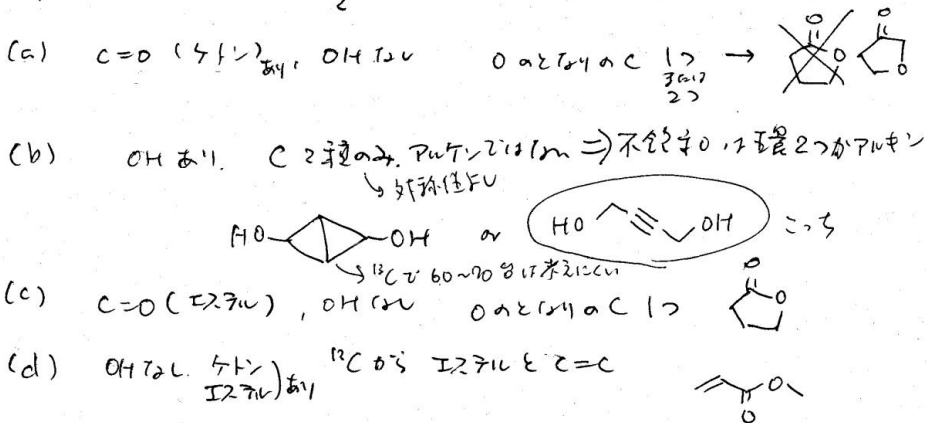 2
(a) C=O (ケトン)あり, OHなし Oのとなりの C 1つ →
または
2つ
O O O O
(b) OHあり. C 2種のみ. アルケンではない ⇒ 不飽和 は環2つかアルキン
↳ 対称性より
HO OH or HO OH こっち
↳ ¹³Cで 60~70 台は考えにくい
(c) C=O (エステル), OHなし Oのとなりの C 1つ O O
(d) OHなし. ケトン ¹³Cから エステルと C=C
エステル)あり
O O